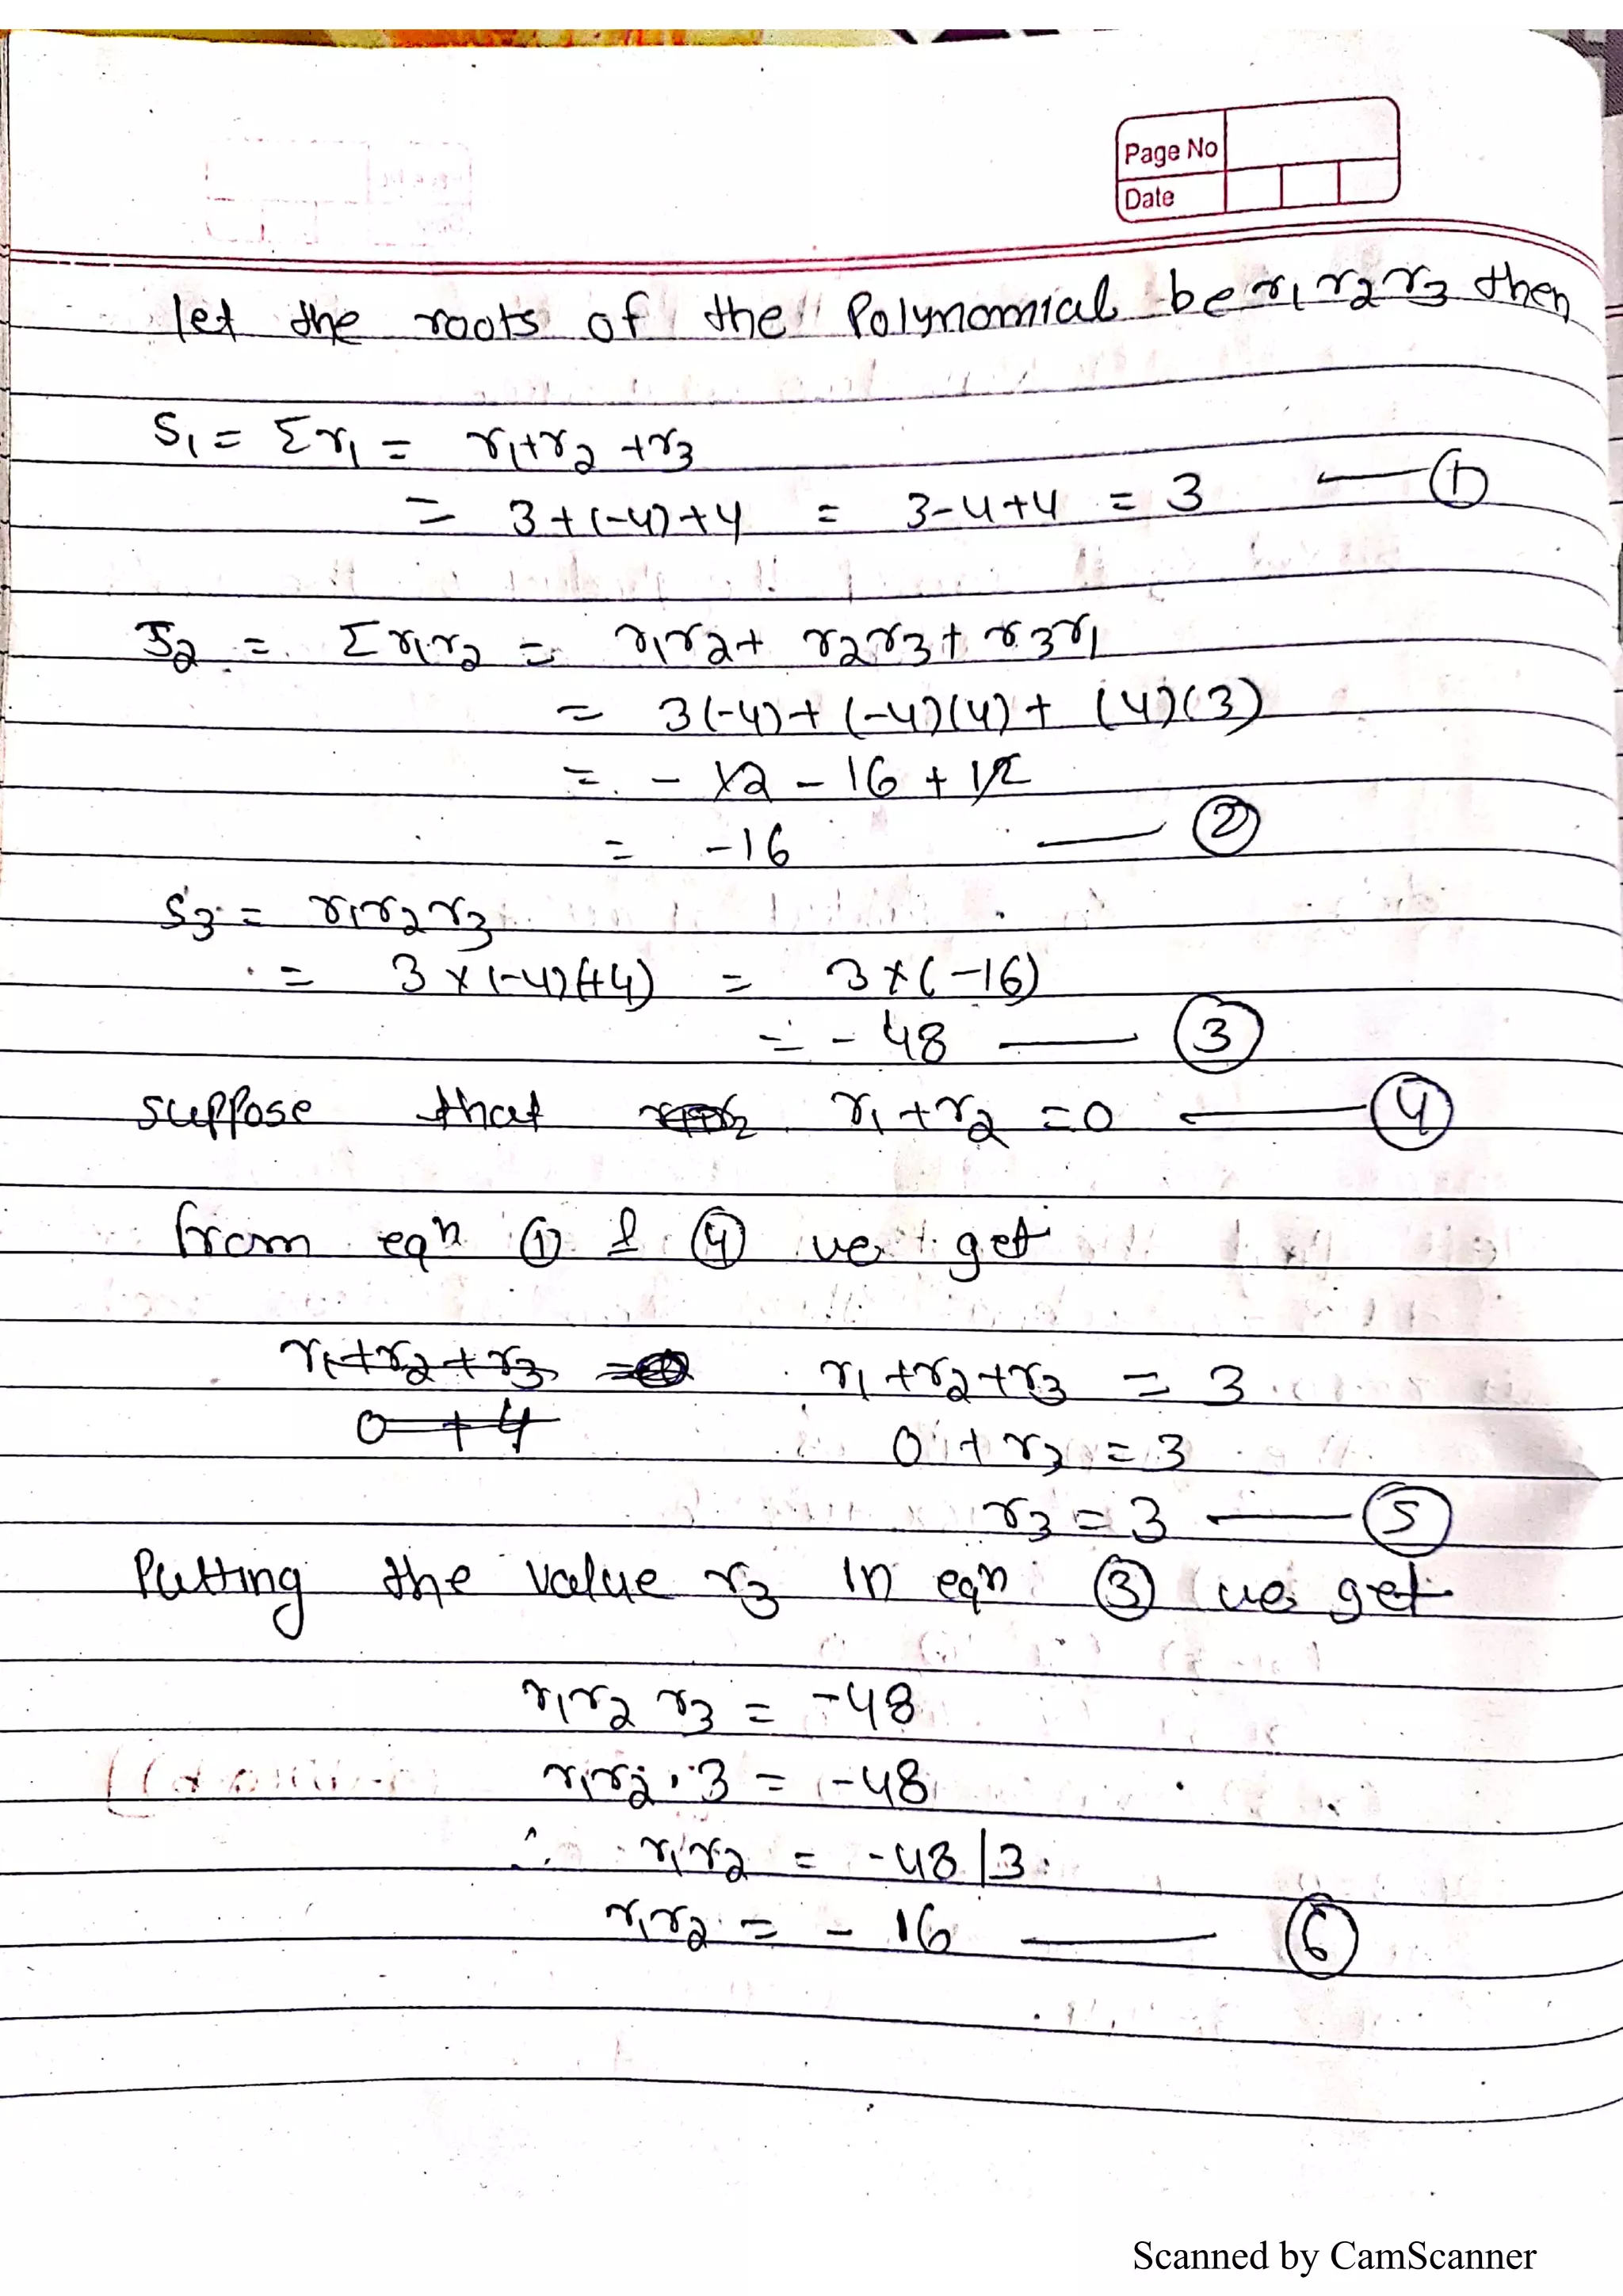 Page No
Date
let the roots of the Polynomial be r₁ r₂ r₃ then
S₁ = Σr₁ = r₁+r₂+r₃
= 3+(-4)+4 = 3-4+4 = 3 — ①
S₂ = Σr₁r₂ = r₁r₂+ r₂r₃+ r₃r₁
= 3(-4)+(-4)(4)+ (4)(3)
= - 12 - 16 + 12
= -16 — ②
S₃ = r₁r₂r₃
= 3×(-4)(+4) = 3×(-16)
= - 48 — ③
suppose that r₁+r₂ =0 — ④
from eqn ① & ④ we get
r₁+r₂+r₃ = r₁+r₂+r₃ = 3
0+4 0+r₃ = 3
r₃ = 3 — ⑤
Putting the value r₃ in eqn ③ we get
r₁r₂ r₃ = -48
r₁r₂.3 = -48
∴ r₁r₂ = -48/3
r₁r₂ = - 16 — ⑥
Scanned by CamScanner